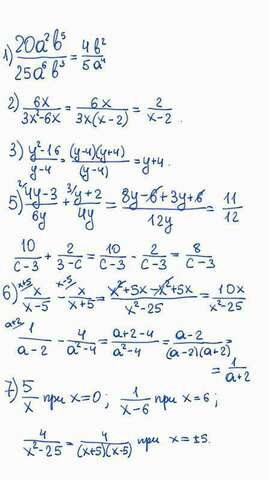 1) 20a²b⁵/25a⁶b³ = 4b²/5a⁴
2) 6x/3x²-6x = 6x/3x(x-2) = 2/x-2.
3) y²-16/y-4 = (y-4)(y+4)/(y-4) = y+4.
5) ²⁄4y-3/6y + ³⁄y+2/4y = 8y-6+3y+6/12y = 11/12
10/c-3 + 2/3-c = 10/c-3 - 2/c-3 = 8/c-3
6) ˣ⁺⁵⁄x/x-5 - ˣ⁻⁵⁄x/x+5 = x²+5x-x²+5x/x²-25 = 10x/x²-25
ᵃ⁺²⁄1/a-2 - 4/a²-4 = a+2-4/a²-4 = a-2/(a-2)(a+2) =
= 1/a+2
7) 5/x при x=0; 1/x-6 при x=6;
4/x²-25 = 4/(x+5)(x-5) при x=±5.